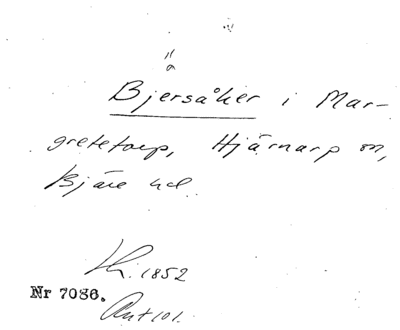 ä
Bjersåker i Mar-
gretetorp, Hjärnarp sn,
Bjäre hd.
Kr. 1852
Nr 7086.
Ant 101.